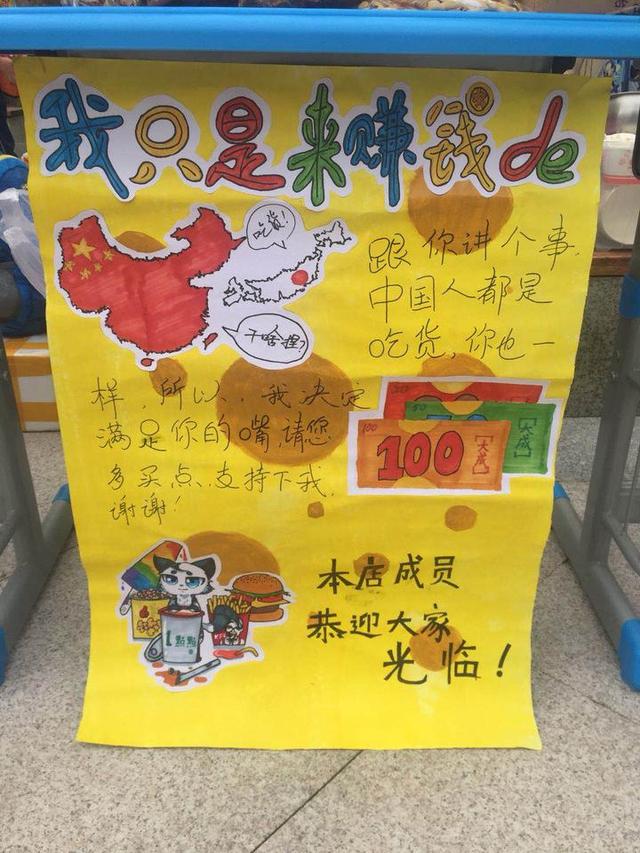 我只是来赚钱de
吃货!
干啥捏?
跟你讲个事,
中国人都是
吃货,你也一
样,所以..我决定
满足你的嘴,请您
多买点,支持下我,
谢谢!
50
100
100
大成
大成
1點點
本店成员
恭迎大家
光临!